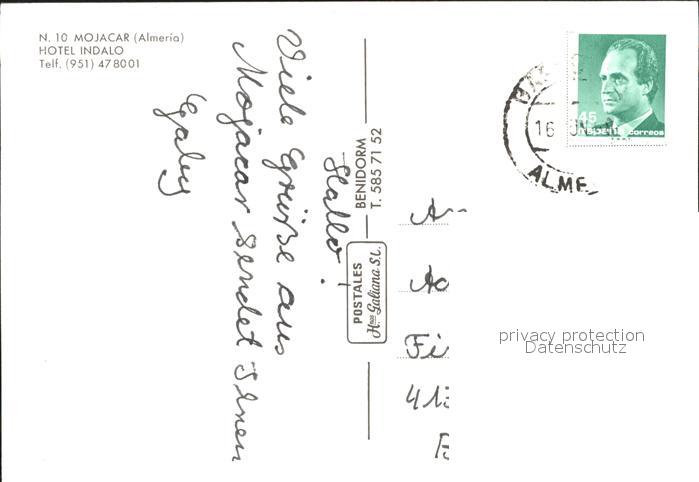 N. 10 MOJACAR (Almería)
HOTEL INDALO
Telf. (951) 478001
Hallo !
Viele Grüße aus
Mojacar sendet Ihnen
Gaby
BENIDORM
T. 585 71 52
POSTALES
Hnos Galiana S.L.
45
España correos
16
ALME
Fi
413
privacy protection
Datenschutz